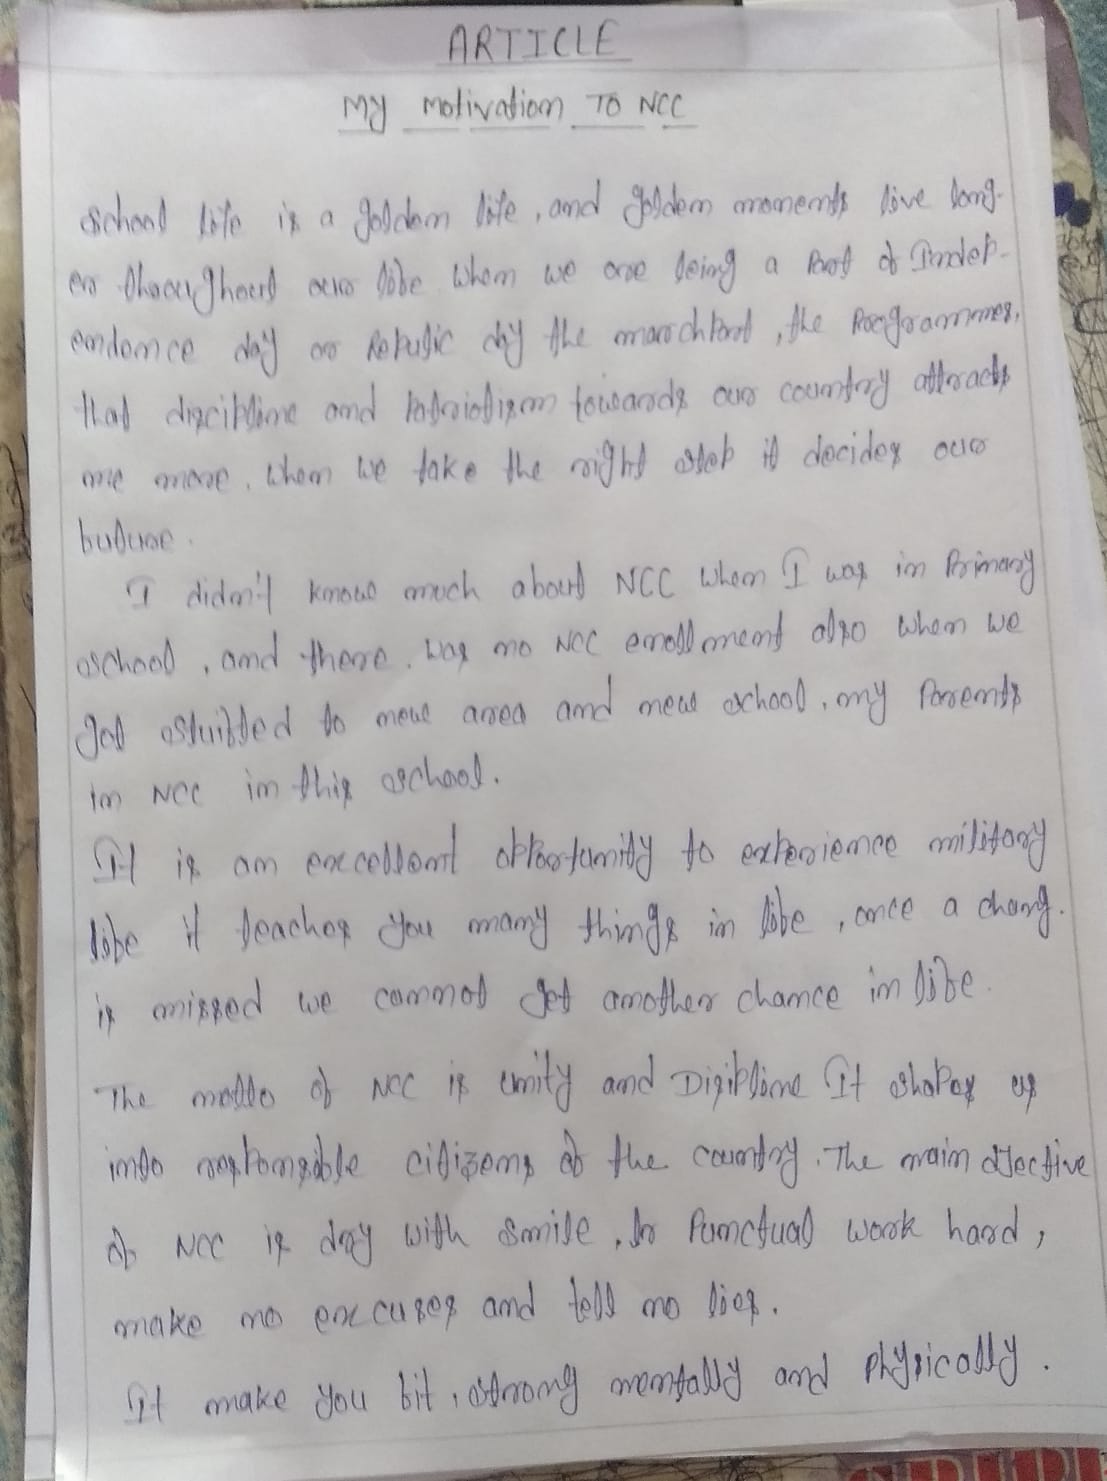 ARTICLE
My Motivation TO NCC
School life is a golden life, and golden moments live long-
er throughout our life. When we are being a Part of Indep-
endence day or Repuglic day the marchPast, the Programmes,
that discipline and Patriotism towards our country attracts
me more. When we take the right step it decides our
future.
I didn't know much about NCC when I was in Primary
school, and there was no NCC enrollment also when we
got shifted to new area and new school, my Parents
in NCC in this school.
It is an excellent opportunity to experience military
life it teaches you many things in life, once a chang.
is missed we cannot get another chance in life.
The motto of NCC is unity and Disipline It shapes us
into responsible citizens of the country. The main objective
of NCC is day with smile, Punctual work hard,
make no excuses and tell no lies.
It make you bit, strong mentally and physically.